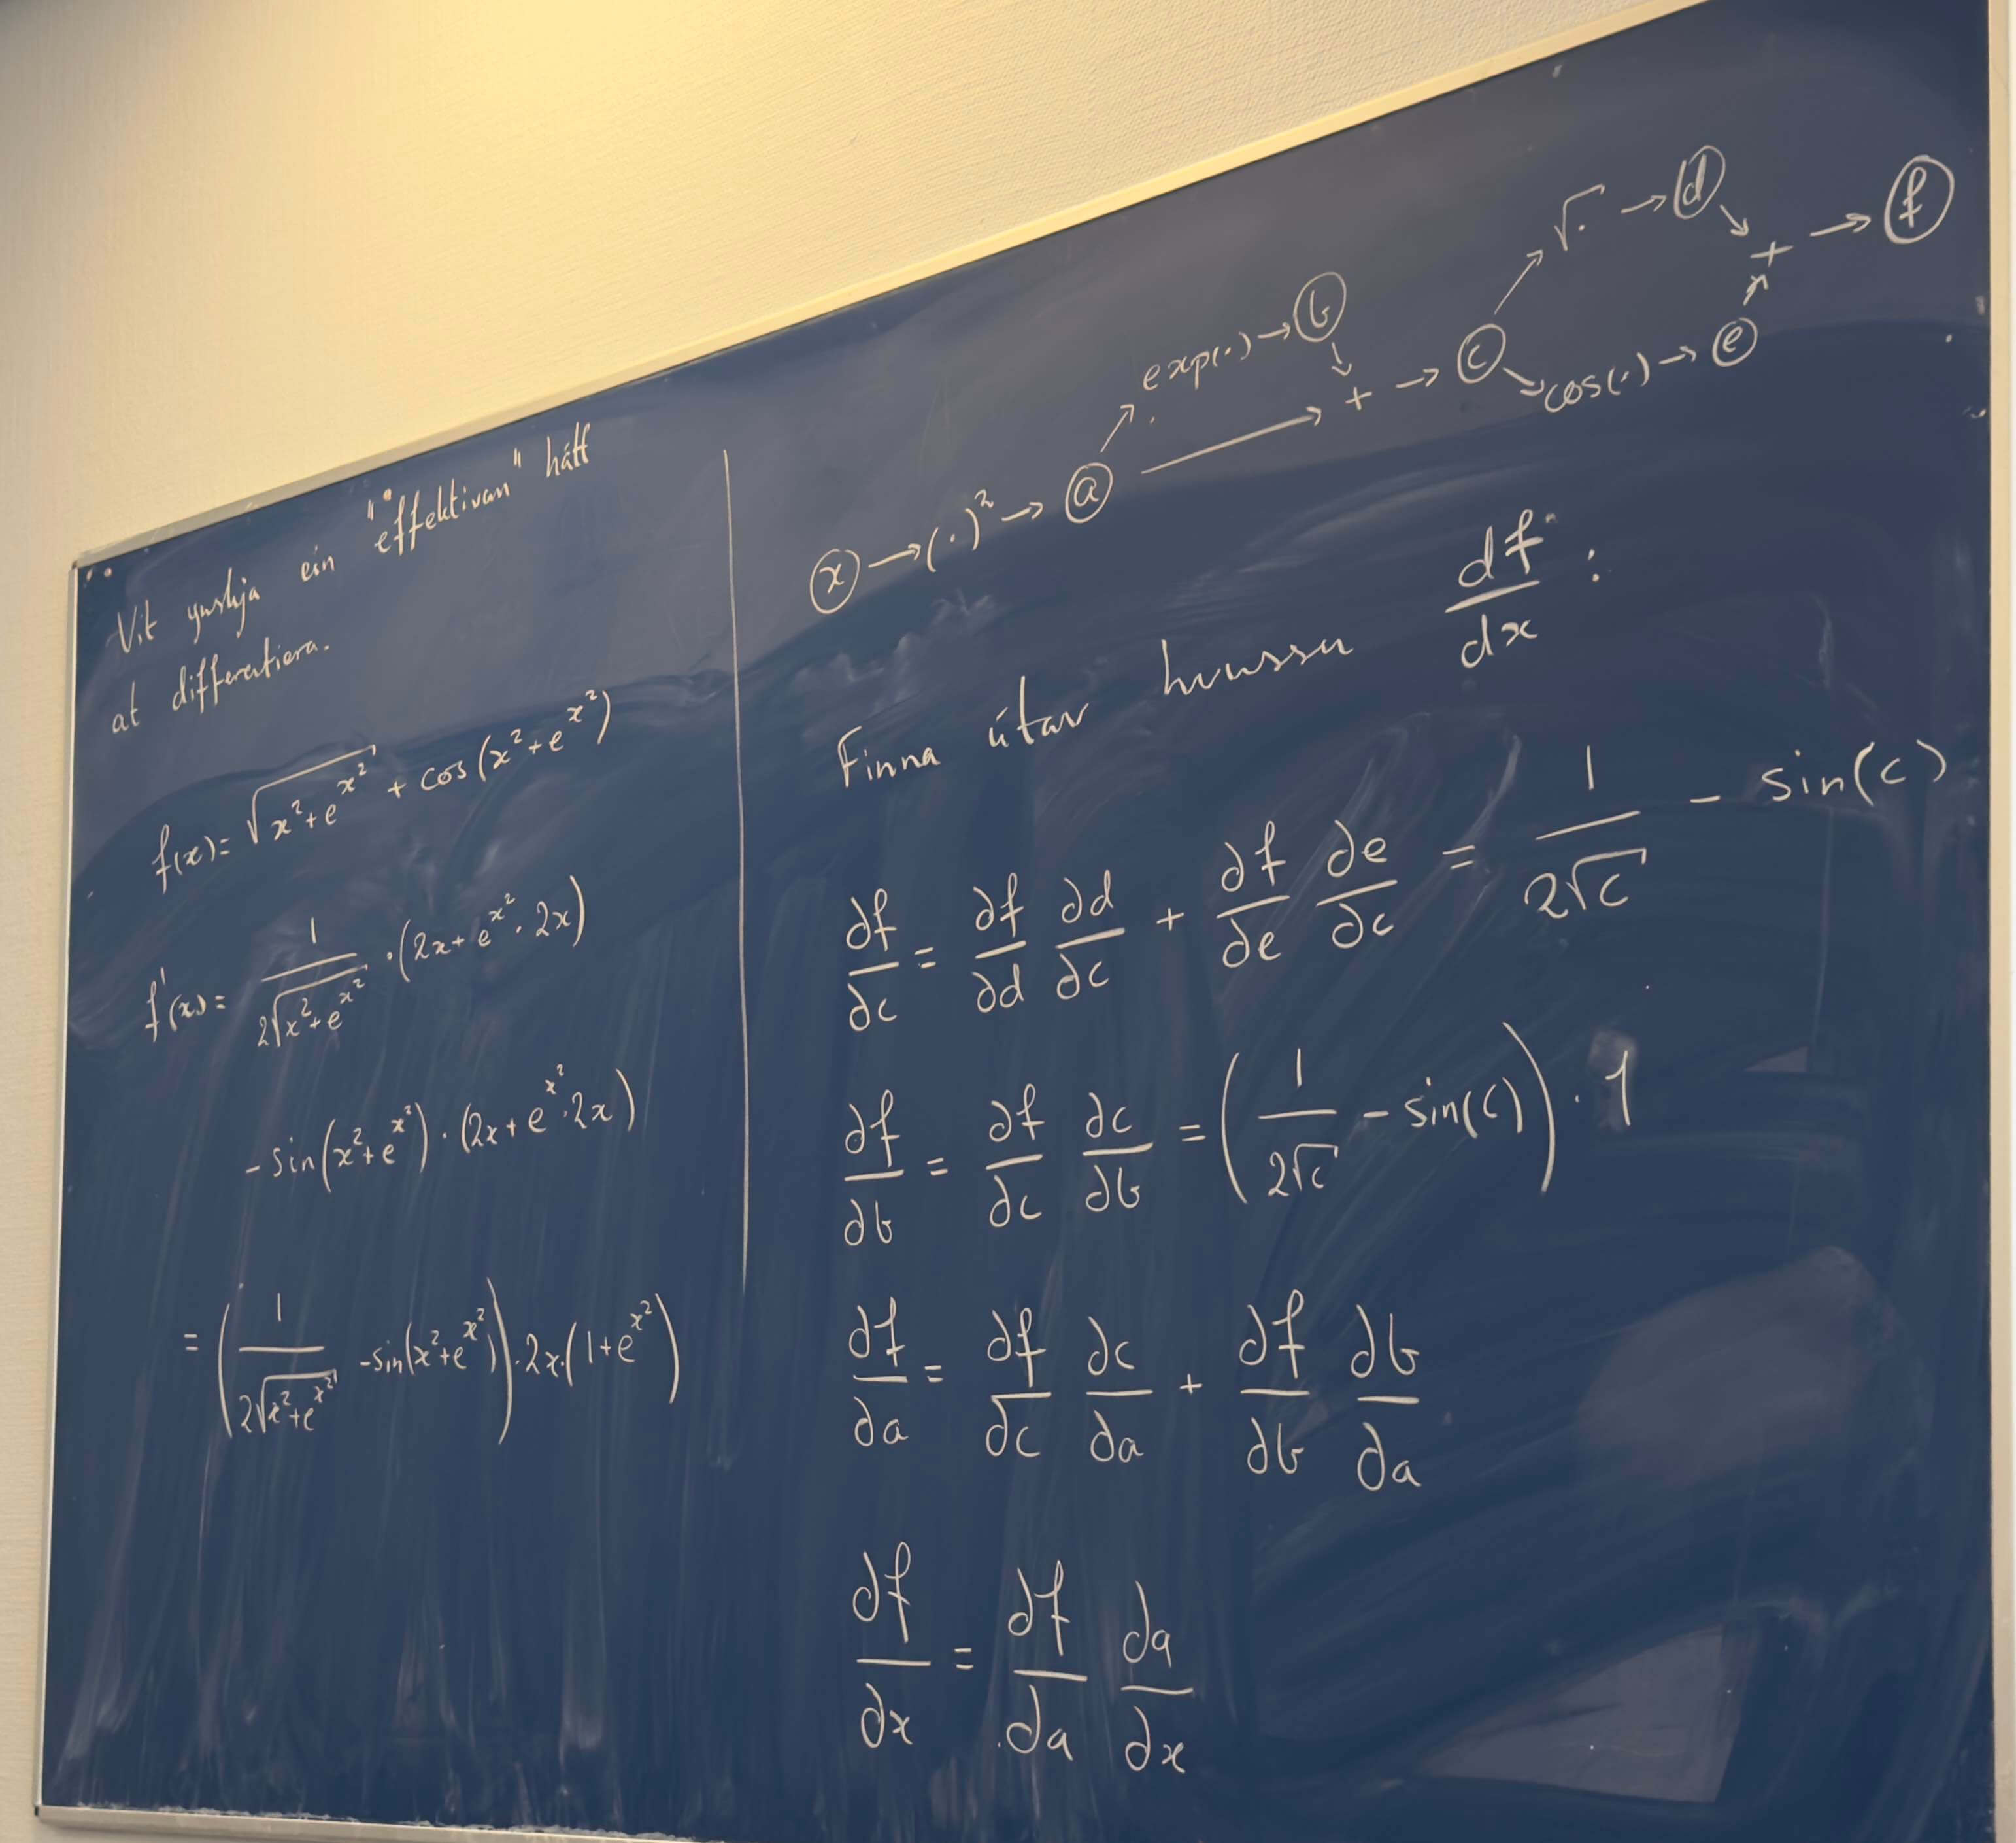 Vit ynskja ein "effektivan" hátt
at differentiera.
f(x) = √(x² + e^(x²)) + cos(x² + e^(x²))
f'(x) = 1/(2√(x² + e^(x²))) · (2x + e^(x²) · 2x)
- sin(x² + e^(x²)) · (2x + e^(x²) · 2x)
= (1/(2√(x² + e^(x²))) - sin(x² + e^(x²))) · 2x · (1 + e^(x²))
exp(·) → b
√· → d
+ → f
x → (·)² → a → + → c → cos(·) → e
Finna útav hvussu df/dx :
∂f/∂c = ∂f/∂d ∂d/∂c + ∂f/∂e ∂e/∂c = 1/(2√c) - sin(c)
∂f/∂b = ∂f/∂c ∂c/∂b = (1/(2√c) - sin(c)) · 1
∂f/∂a = ∂f/∂c ∂c/∂a + ∂f/∂b ∂b/∂a
∂f/∂x = ∂f/∂a ∂a/∂x